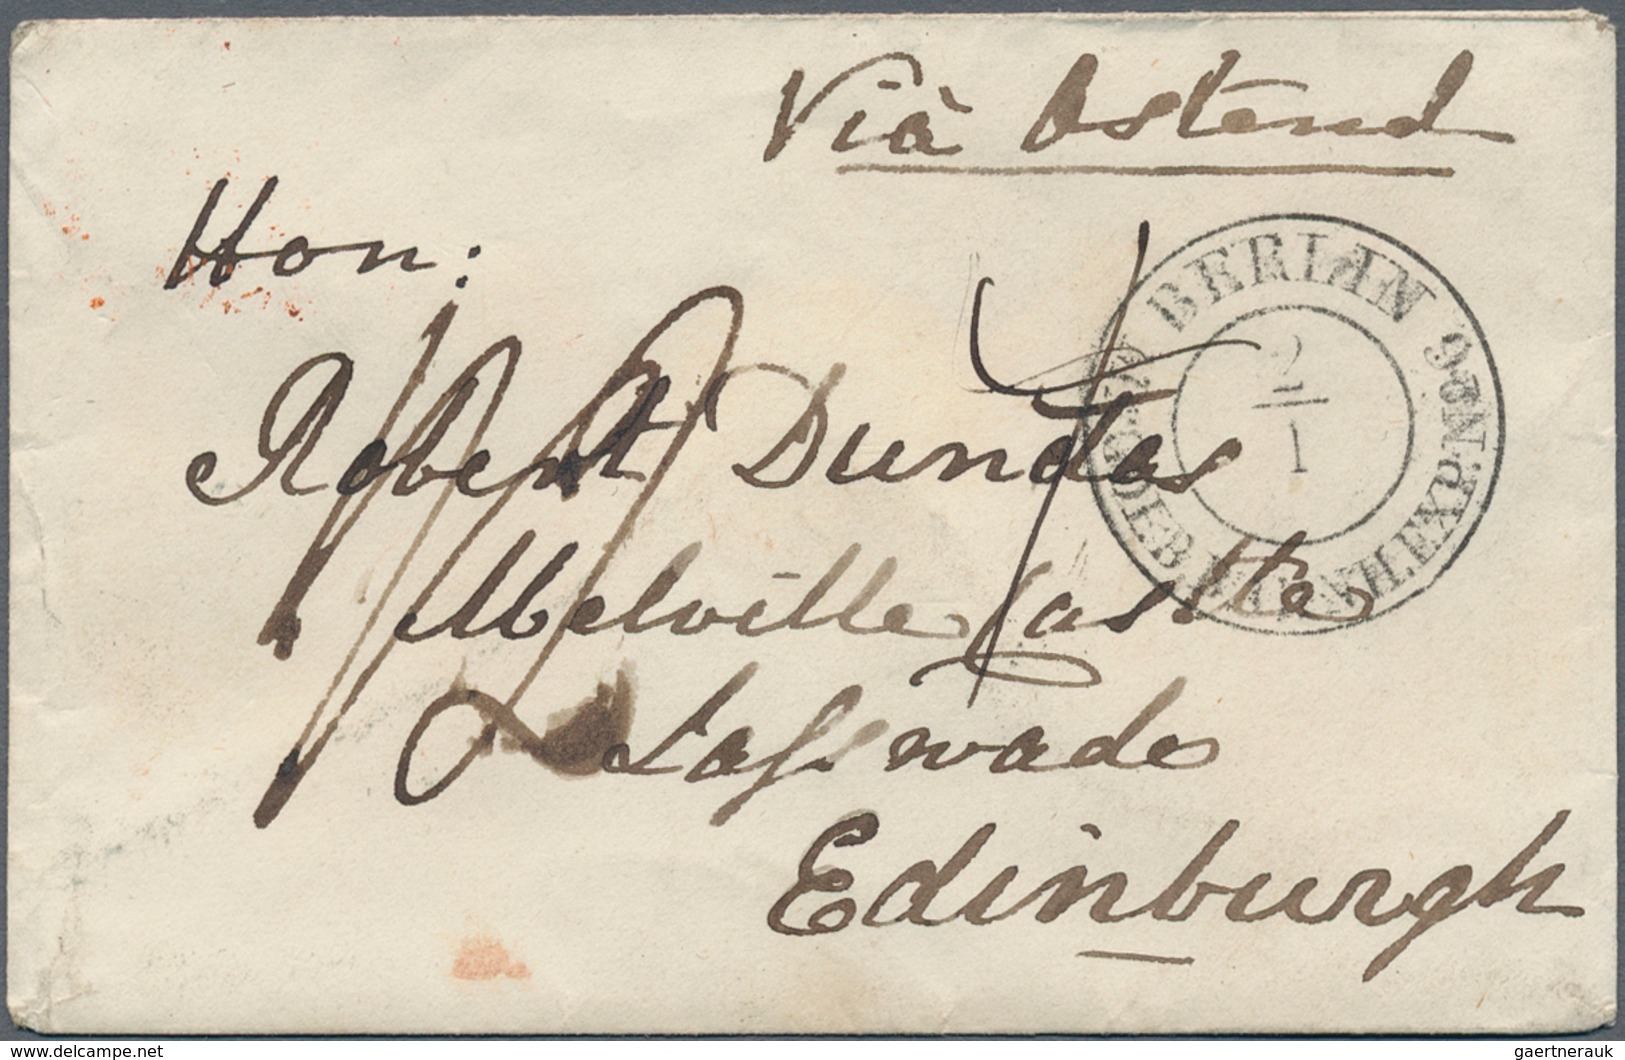 Vià Ostend
Hon:
Robert Dundas
Melville Castle
Lasswade
Edinburgh
BERLIN
2
1
EXP.
delcampe.net
gaertnerauk